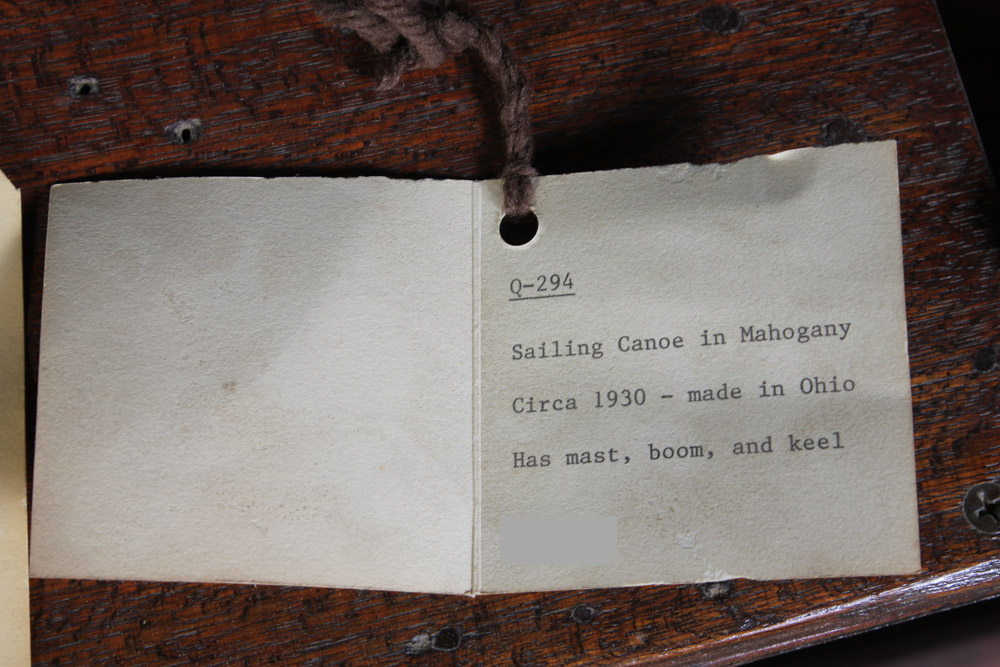 Q-294
Sailing Canoe in Mahogany
Circa 1930 - made in Ohio
Has mast, boom, and keel